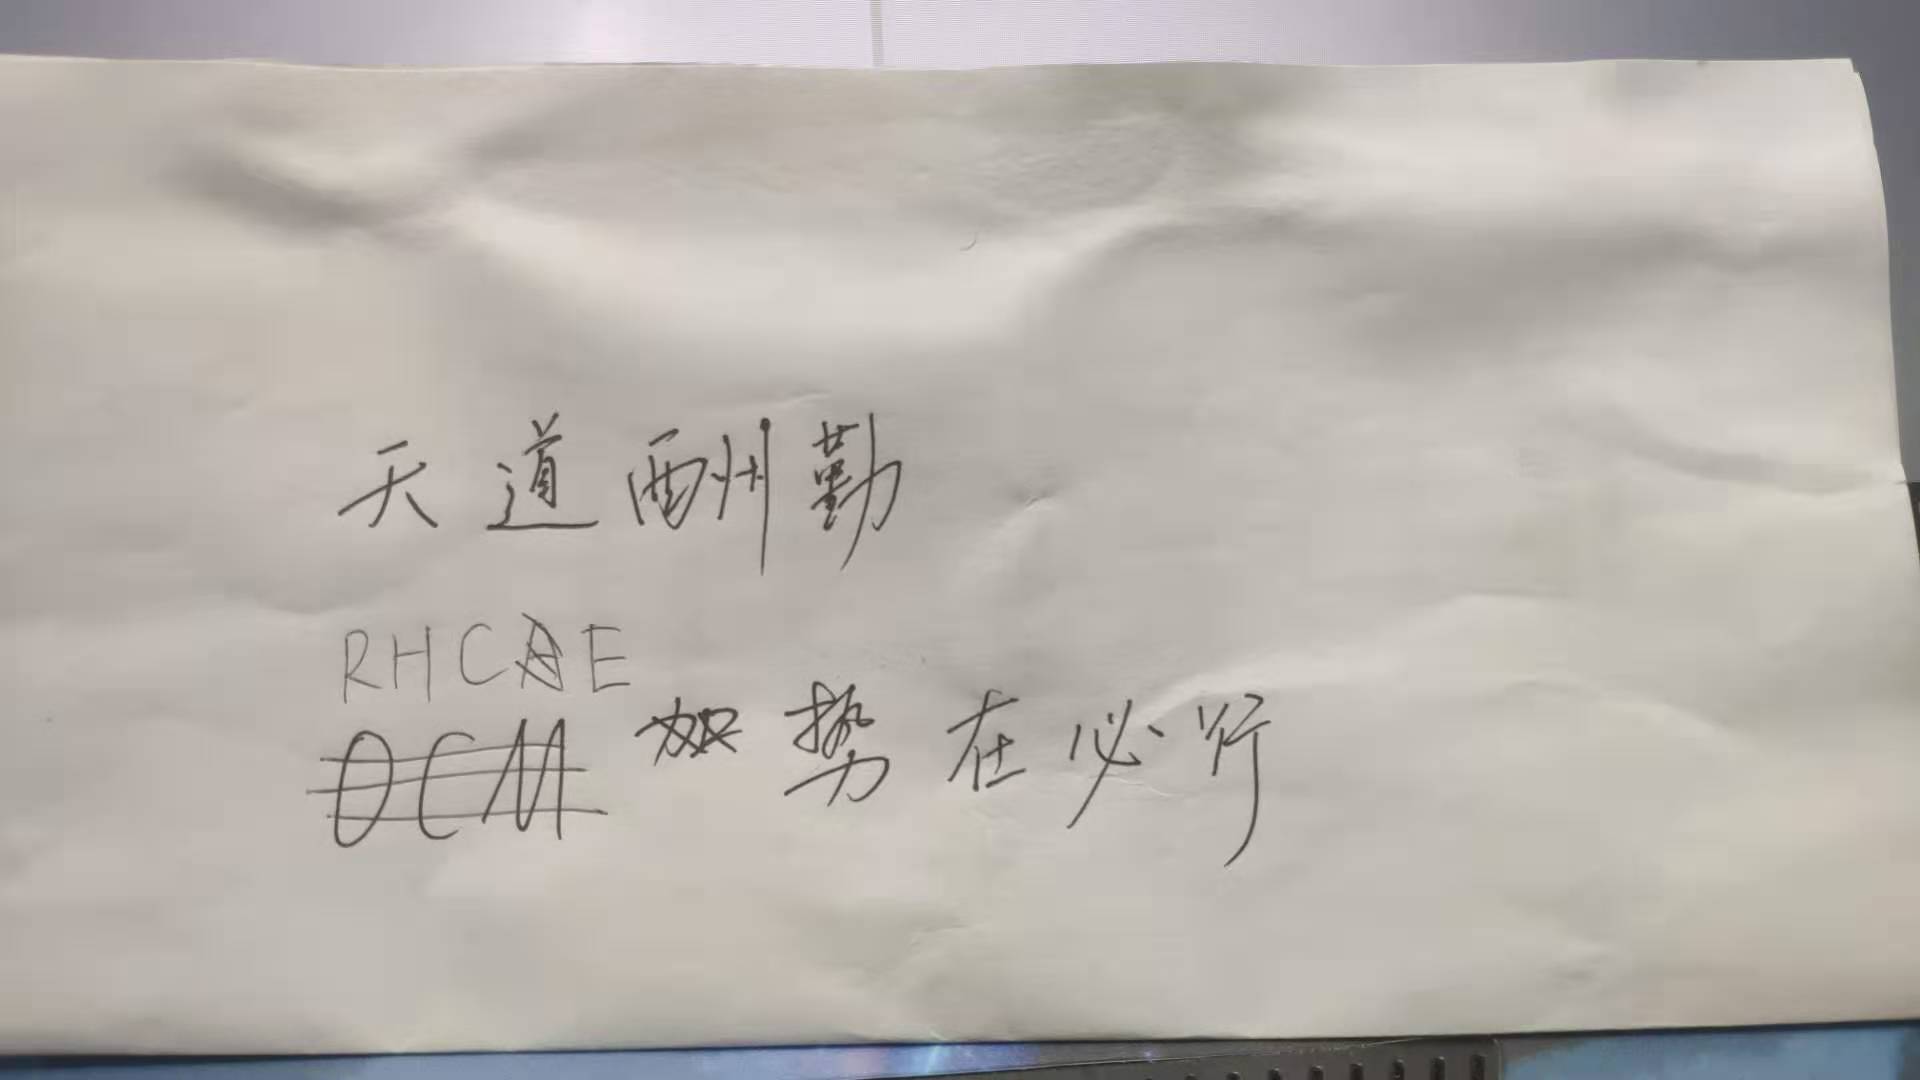 天道酬勤
RHCE
势在必行